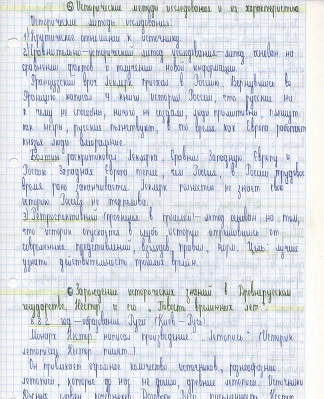 ⑤ Исторические методы исследования и их характеристика.
Исторические методы исследования:
1) Критическое отношение к источнику.
2) Сравнительно-исторический метод исследования – метод основан на
сравнении фактов и получении новой информации.
Французский врач Леклерк приехал в Россию. Вернувшись во
Францию написал 4 книги истории России, что русские ни
к чему не способны, ничего не создали, люди примитивны, пляшут
как негры, русские пьянствуют, в то время как Европа работает
князья люди аморальные.
Болтин раскритиковал Леклерка. Сравнил Западную Европу и
Россию. Западная Европа теплей, чем Россия, в России трудовое
время рано заканчивается. Леклерк пытается не знает свою
историю. Россия не торопливо.
3) Ретроспективный (проекция в прошлое) – метод основан на том,
что историк опускается в глубь истории отрешившись от
современных представлений, взглядов, правил, норм. Цель: лучше
узнать действительность прошлых времён.
⑥ Зарождение исторических знаний в Древнерусском
государстве. Нестор и его "Повесть временных лет".
882 год – образование Руси (Киев – Русь)
Монах Нестор написал произведение "Летопись" (Историк
летописец Нестор пишет...)
Он привлекает огромное количество источников, разнообразные
летописи, которые до нас не дошли, древние летописи. Источники
Южных славян
Нестор